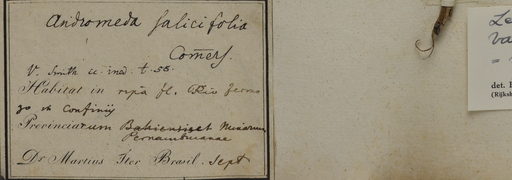 Andromeda salicifolia
Comers.
V. Smith ic. ined. t. 58.
Habitat in ripa fl. Rio
in Confinij
Provinciarum Bahiensis et Minarum
Pernambucanae
Dr Martius Iter Brasil. Sept
Le
va
=
det.
(Rijksh